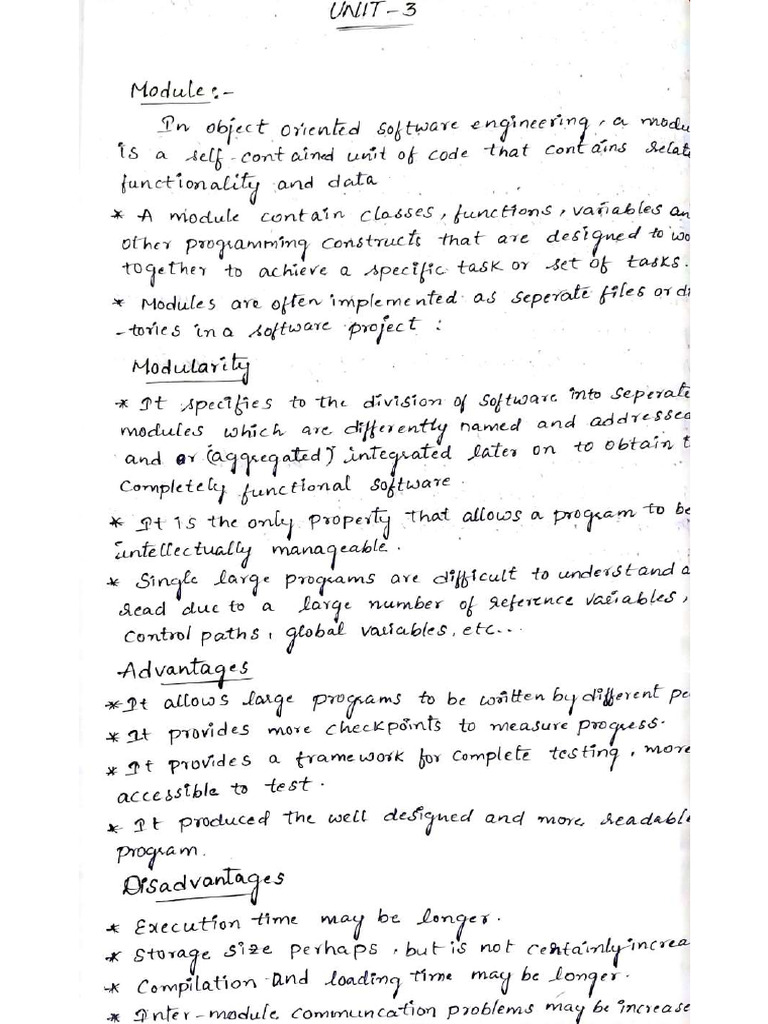 UNIT-3
Module:-
In object oriented software engineering, a modu
is a self-containd unit of code that contains relat
functionality and data
* A module contain classes, functions, variables an
other programming constructs that are designed to wo
together to achieve a specific task or set of tasks.
* Modules are often implemented as seperate files or di
-tories in a software project :
Modularity
* It specifies to the division of software into seperate
modules which are differently named and addressed
and or (aggregated) integrated later on to obtain t
completely functional software.
* It is the only property that allows a program to be
intellectually manageable.
* Single large programs are difficult to understand a
read due to a large number of reference variables,
control paths, global variables, etc...
Advantages
* It allows large programs to be written by different pe
* It provides more checkpoints to measure progress.
* It provides a framework for complete testing, more
accessible to test.
* It produced the well designed and more readable
program.
Disadvantages
* Execution time may be longer.
* Storage size perhaps, but is not certainly increa
* Compilation and loading time may be longer.
* Inter-module communcation problems may be increase